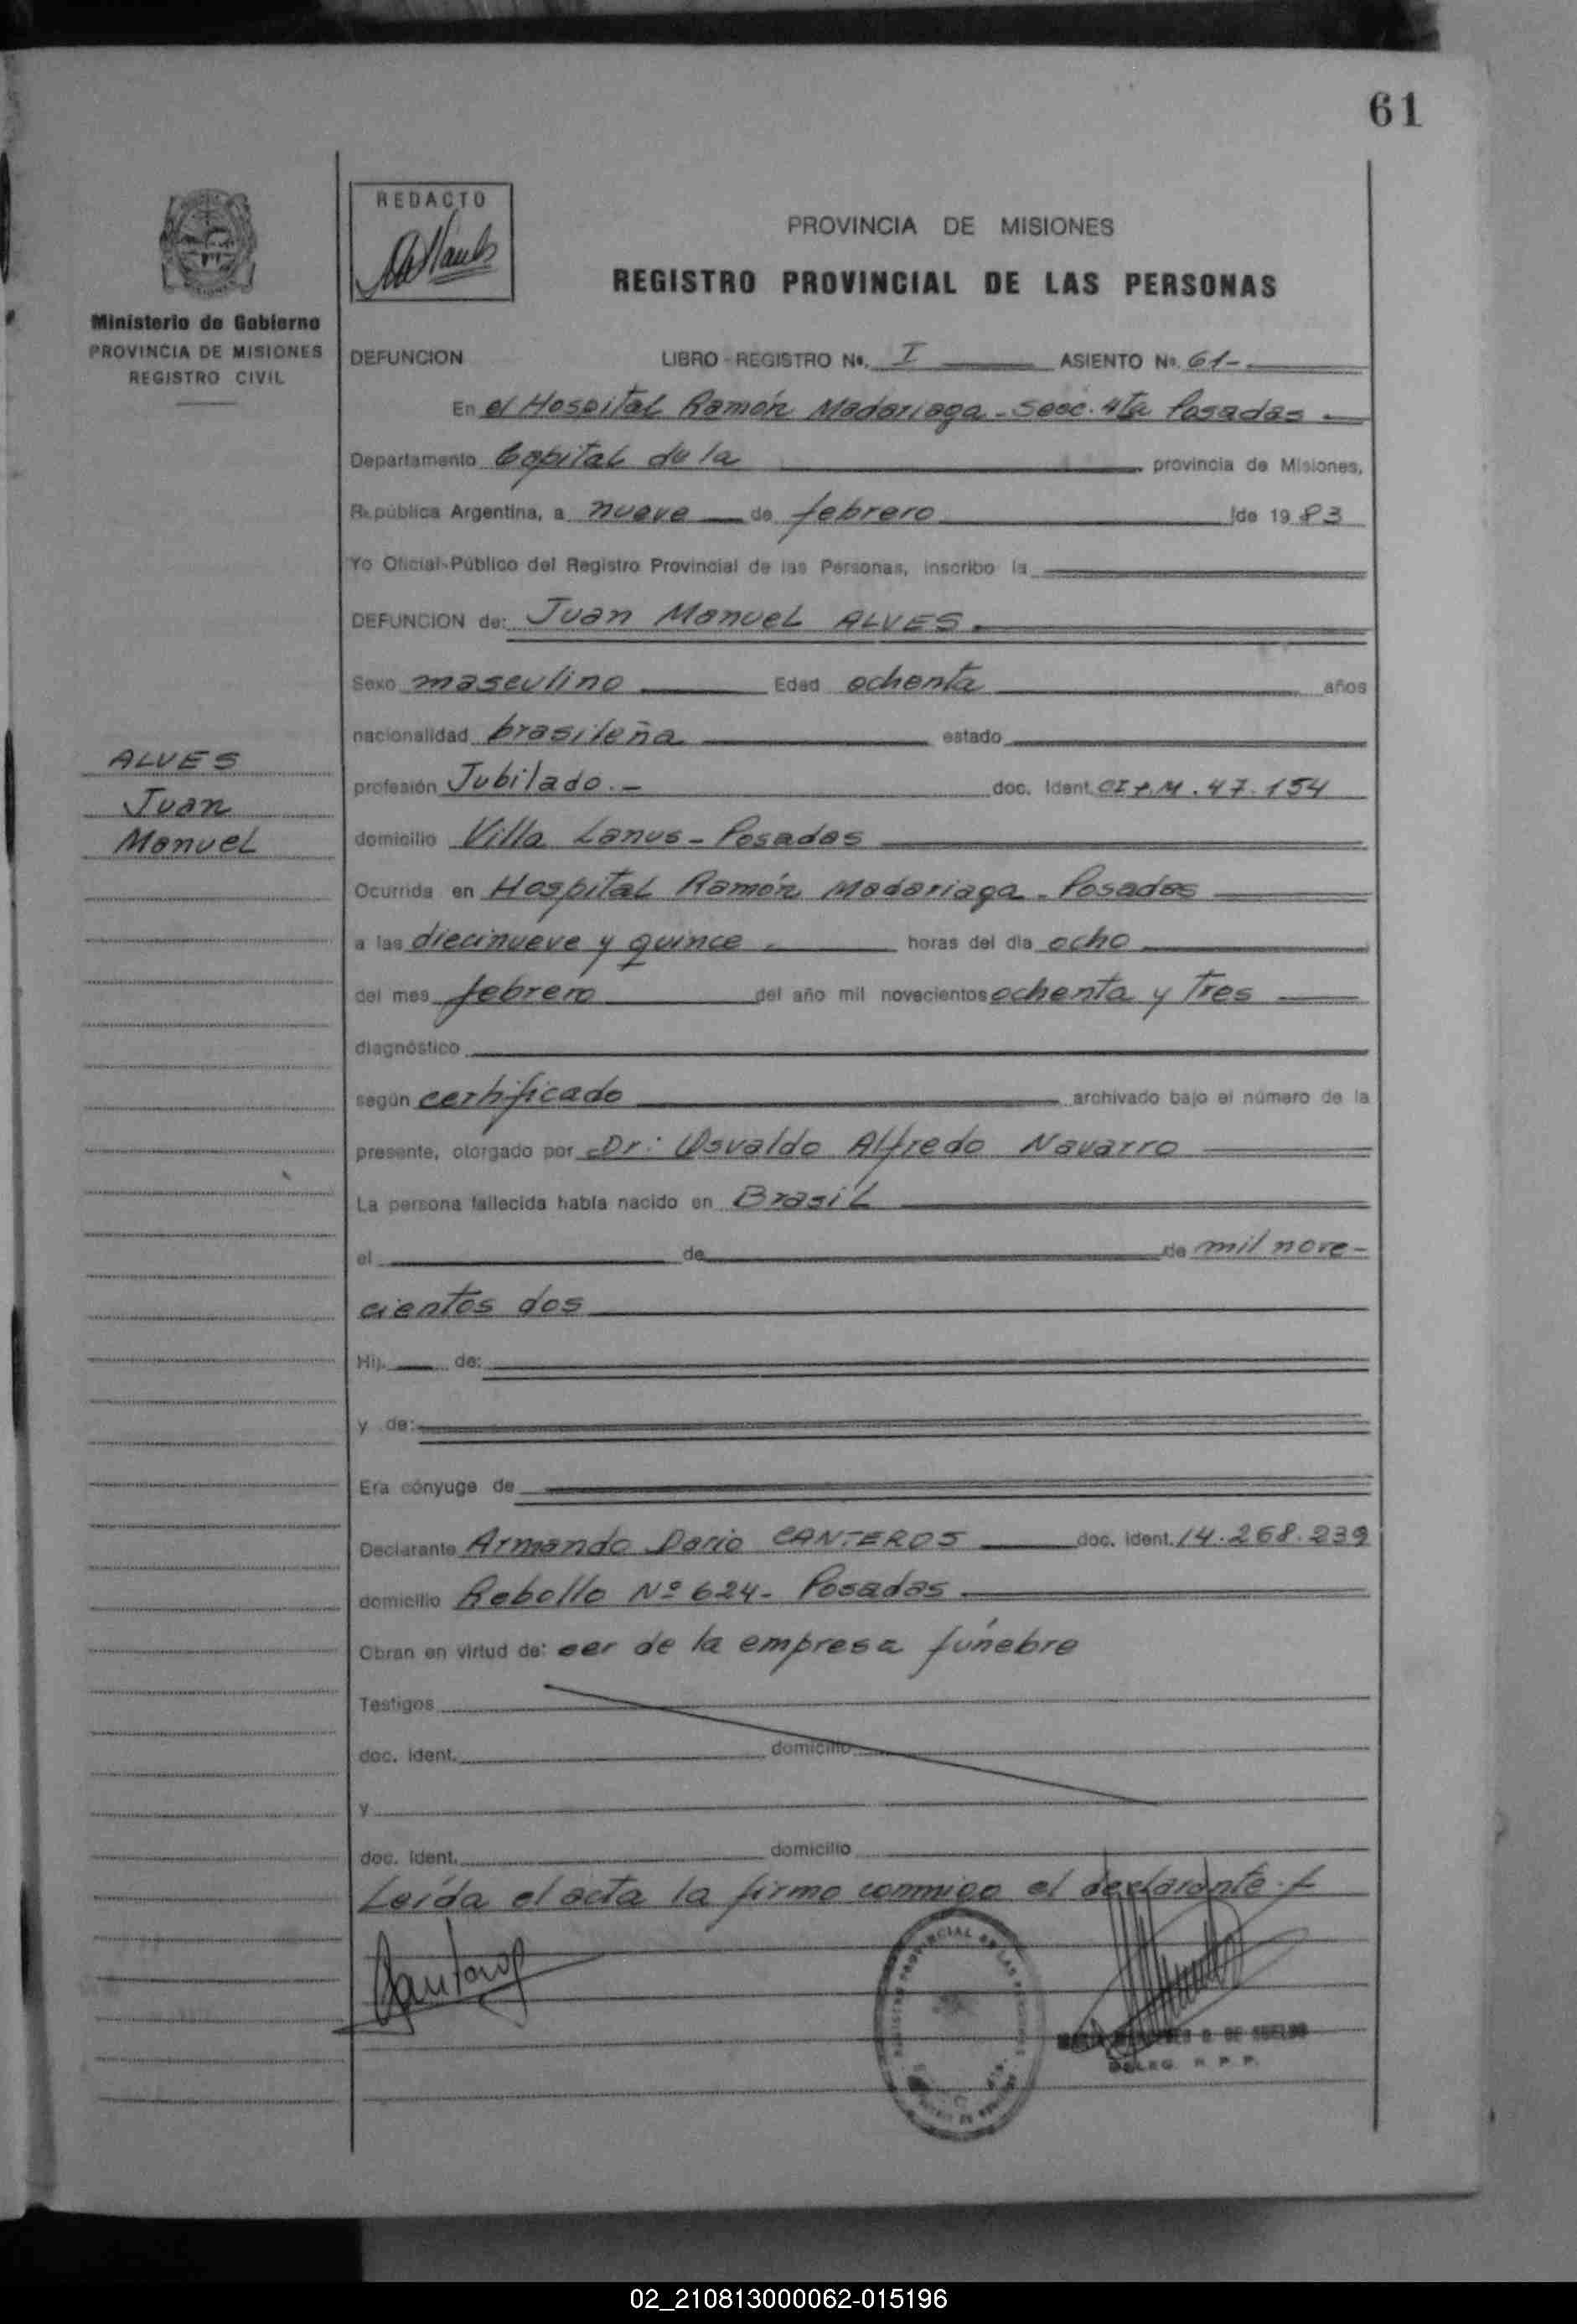 61
REDACTO
PROVINCIA DE MISIONES
REGISTRO PROVINCIAL DE LAS PERSONAS
Ministerio de Gobierno
PROVINCIA DE MISIONES
REGISTRO CIVIL
DEFUNCION LIBRO-REGISTRO No. I ASIENTO No. 61-
En el Hospital Ramón Madariaga - Secc. 4ta Posadas
Departamento Capital de la provincia de Misiones,
República Argentina, a nueve de febrero de 1983
Yo Oficial-Público del Registro Provincial de las Personas, inscribo la
DEFUNCION de: Juan Manuel ALVES
Sexo masculino Edad ochenta años
nacionalidad brasileña estado
ALVES
Juan
Manuel
profesión Jubilado.- doc. Ident. CI P.M. 47.154
domicilio Villa Lanus - Posadas
Ocurrida en Hospital Ramón Madariaga - Posadas
a las diecinueve y quince horas del dia ocho
del mes febrero del año mil novecientos ochenta y Tres
diagnóstico
según certificado archivado bajo el número de la
presente, otorgado por Dr: Osvaldo Alfredo Navarro
La persona fallecida había nacido en Brasil
el de de mil nove-
cientos dos
Hij. de:
y de:
Era cónyuge de
Declarante Armando Dario CANTEROS doc. ident. 14.268.239
domicilio Rebollo Nº 624- Posadas
Obran en virtud de: ser de la empresa fúnebre
Testigos
doc. ident. domicilio
y
doc. ident. domicilio
Leída el acta la firma conmigo el declarante
DELEG. R. P. P.
02_210813000062-015196